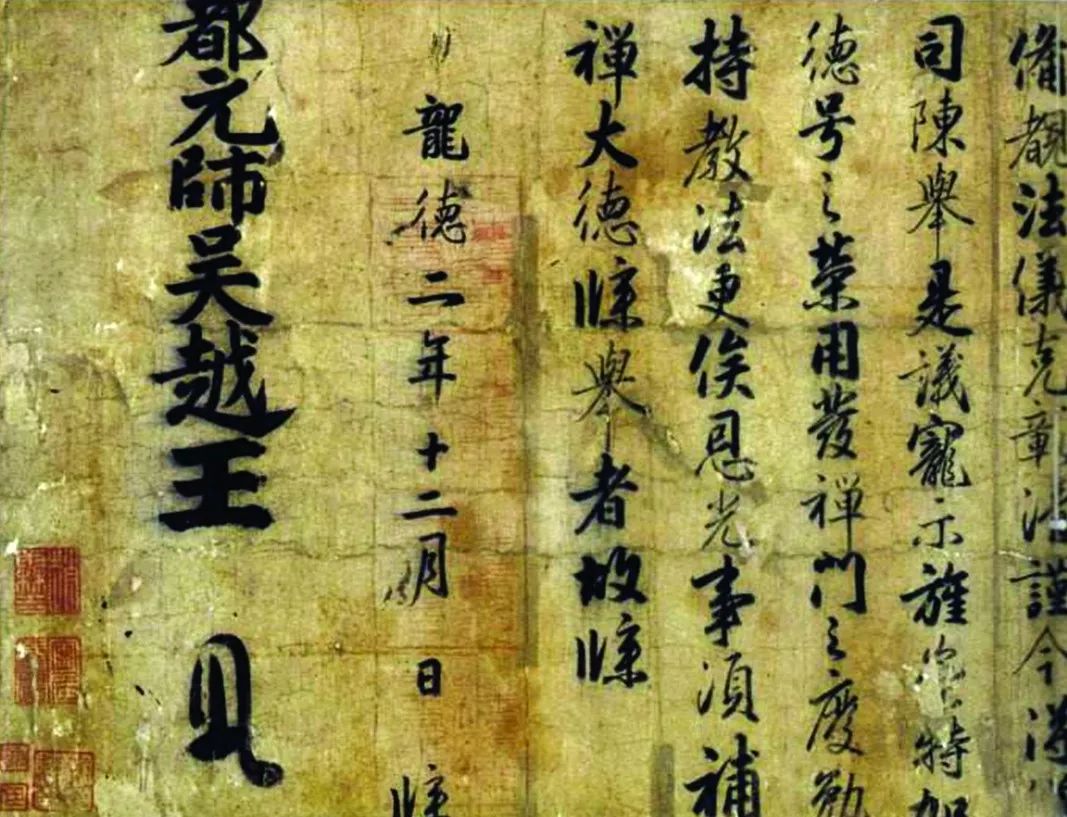 備覩法儀克章法謹今
司陳舉是議寵示旌特加
德号之榮用發禪門之慶勉
持教法更俟恩光事須補
禪大德牒舉者故牒
龍德二年十二月日牒
都元帥吴越王